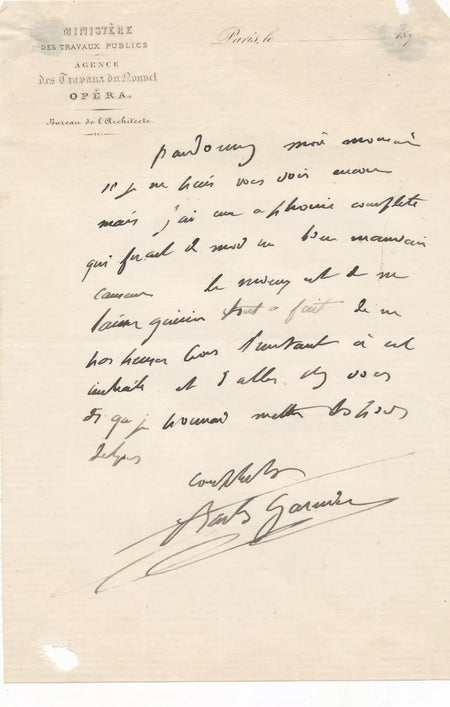 MINISTÈRE
DES TRAVAUX PUBLICS
AGENCE
des Travaux du Nouvel
OPÉRA.
Bureau de l'Architecte.
Paris, le 18
pardonnez moi monsieur
si je ne puis vous voir encore
mais j'ai une aphonie complète
qui ferait de moi un bien mauvais
causeur le mieux est de me
laisser guérir tout a fait de ne
pas l'instant à cet
et d'aller chez vous
dès que je pourrai mettre les pieds
dehors
Charles Garnier